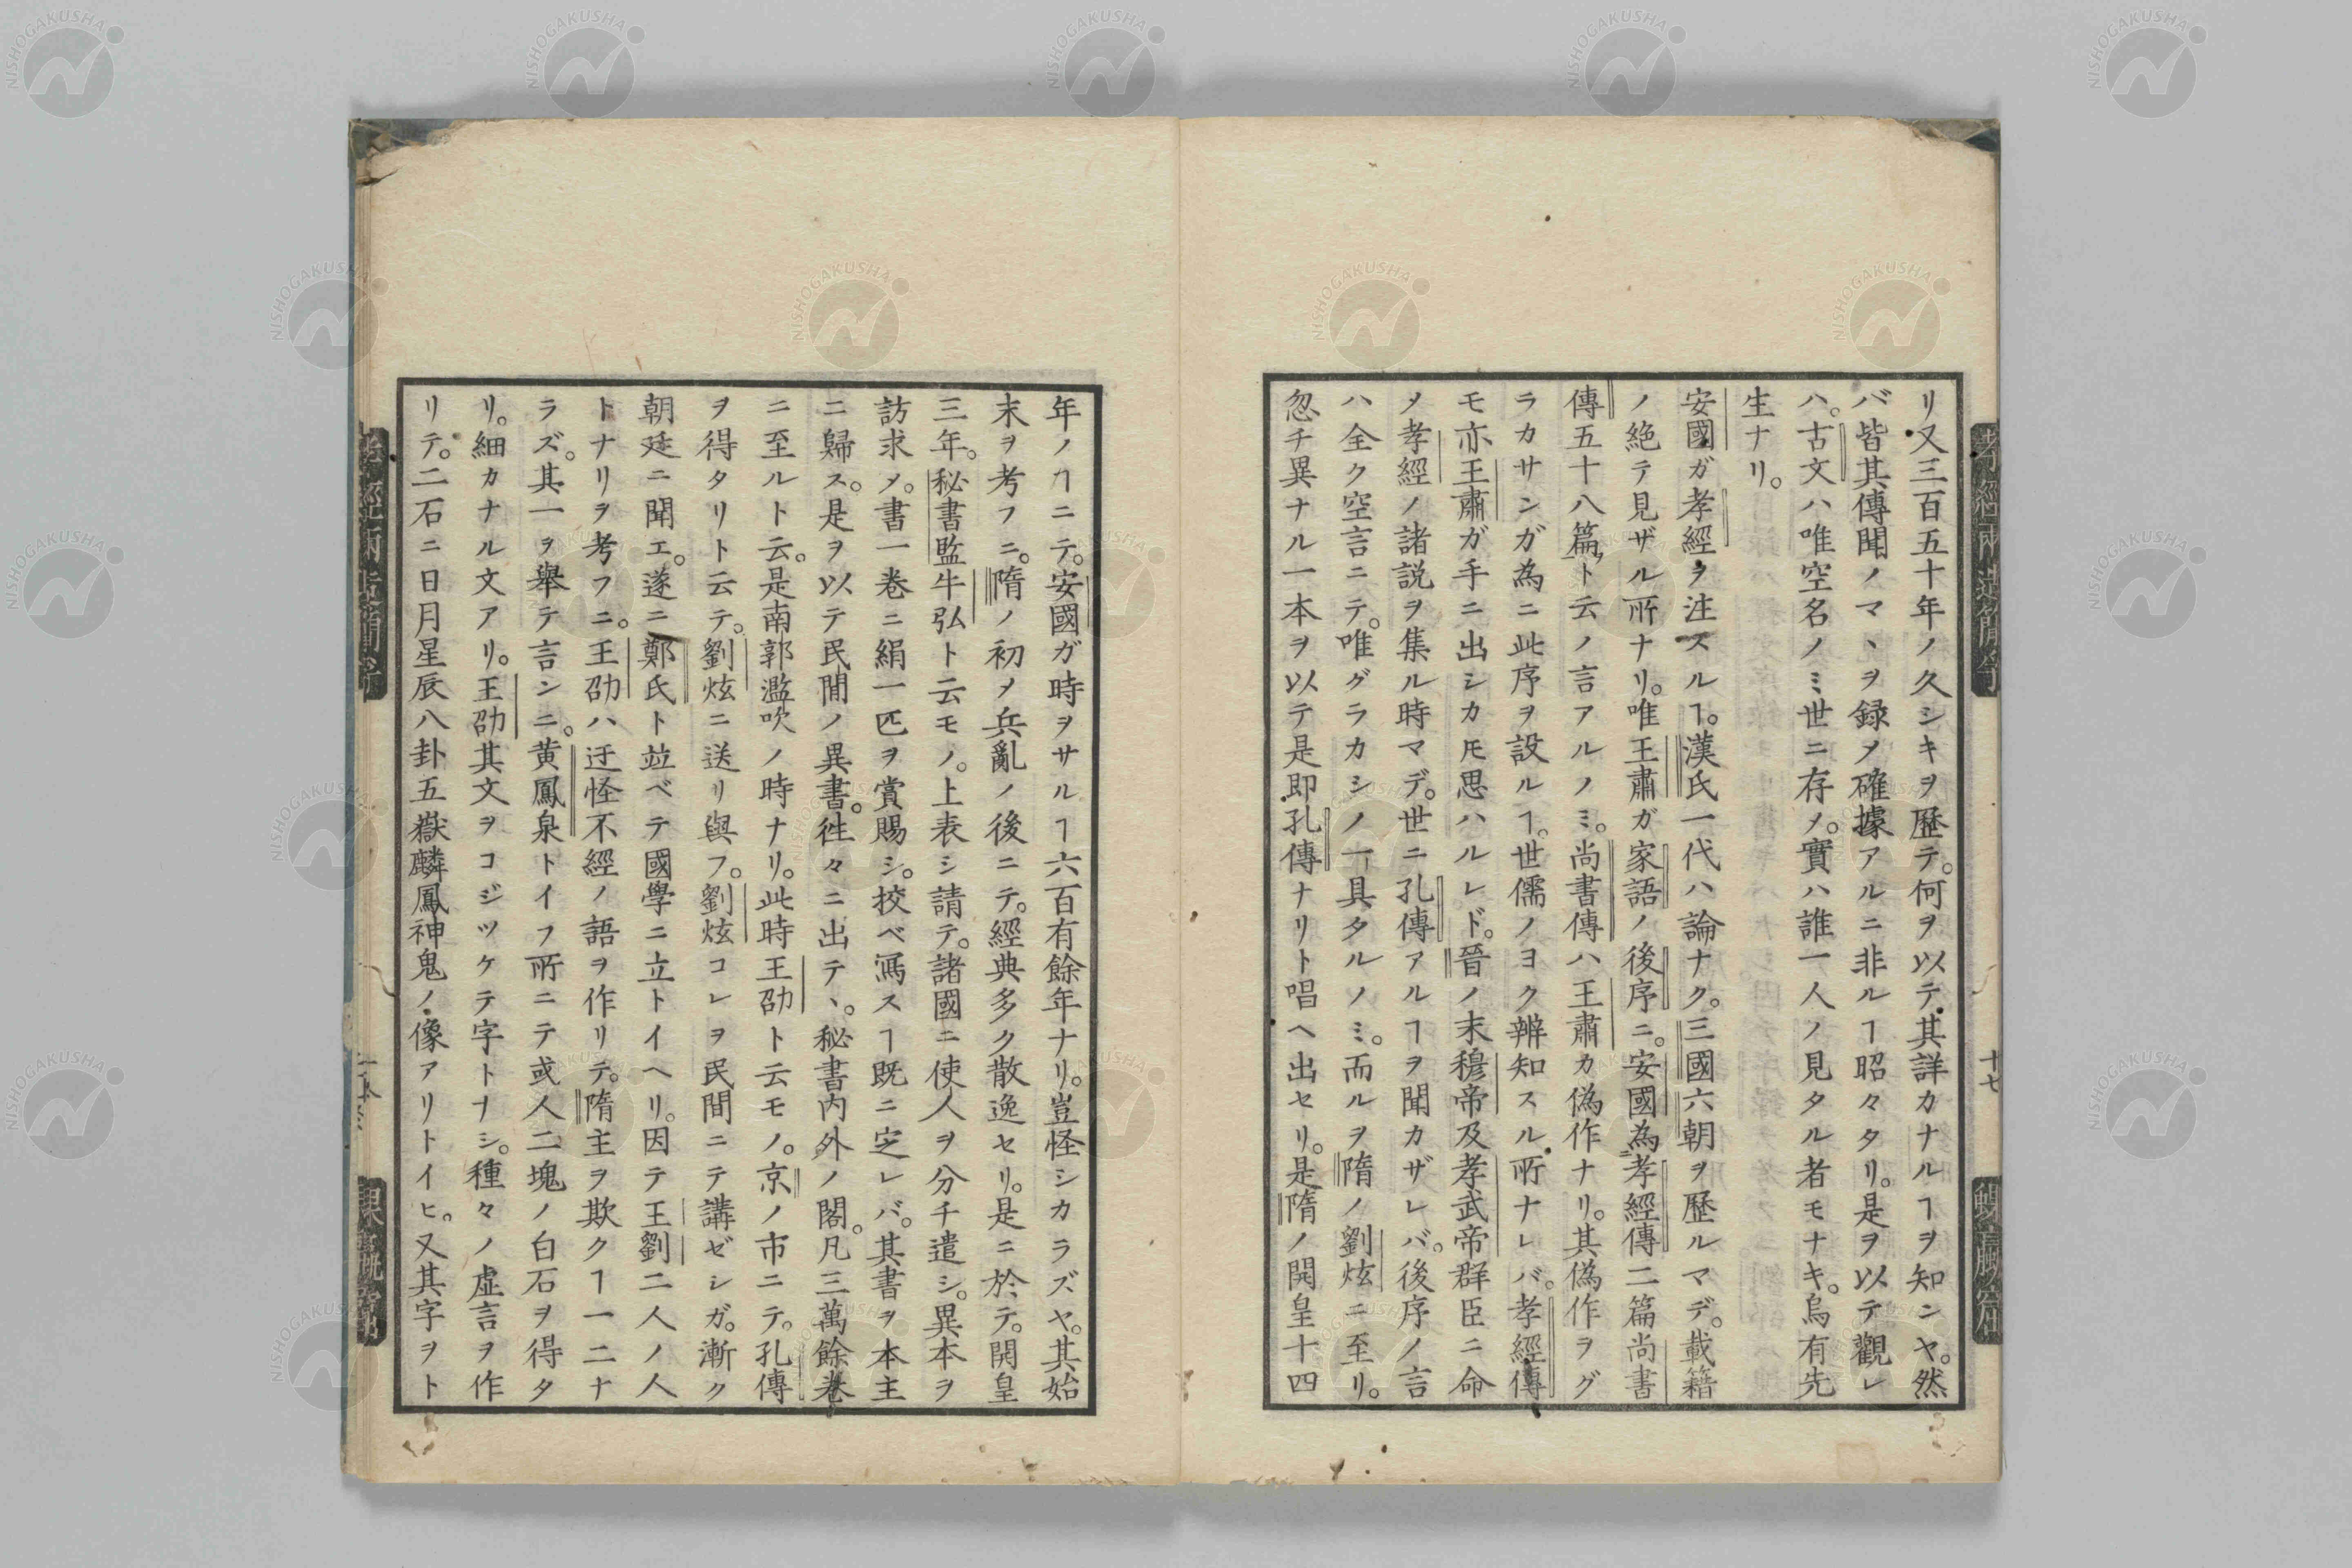 リ又三百五十年ノ久シキヲ歷テ。何ヲ以テ其詳カナルヿヲ知ンヤ。然
バ皆其傳聞ノマヽヲ録メ確據アルニ非ルヿ昭々タリ。是ヲ以テ觀レ
ハ。古文ハ唯空名ノミ世ニ存メ。實ハ誰一人ノ見タル者モナキ。烏有先
生ナリ。
安國ガ孝經ヲ注スルヿ。漢氏一代ハ論ナク。三國六朝ヲ歷ルマデ。載籍
ノ絶テ見ザル所ナリ。唯王肅ガ家語ノ後序ニ。安國為孝經傳二篇尚書
傳五十八篇ト云ノ言アルノミ。尚書傳ハ王肅カ偽作ナリ。其偽作ヲグ
ラカサンガ為ニ此序ヲ設ルヿ。世儒ノヨク辨知スル所ナレバ。孝經傳
モ亦王肅ガ手ニ出シカ𪜈思ハルレド。晉ノ末穆帝及孝武帝群臣ニ命
メ孝經ノ諸説ヲ集ル時マデ。世ニ孔傳アルヿヲ聞カザレバ。後序ノ言
ハ全ク空言ニテ。唯グラカシノヿ具タルノミ。而ルヲ隋ノ劉炫ニ至リ。
忽チ異ナル一本ヲ以テ是即孔傳ナリト唱ヘ出セリ。是隋ノ開皇十四
十七
年ノヿニテ。安國ガ時ヲサルヿ六百有餘年ナリ。豈怪シカラズヤ。其始
末ヲ考フニ。隋ノ初メ兵亂ノ後ニテ。經典多ク散逸セリ。是ニ於テ。開皇
三年。秘書監牛弘ト云モノ。上表シ請テ。諸國ニ使人ヲ分チ遣シ。異本ヲ
訪求メ。書一卷ニ絹一匹ヲ賞賜シ。挍ベ寫スヿ既ニ定レバ。其書ヲ本主
ニ歸ス。是ヲ以テ民間ノ異書。徃々ニ出テヽ。秘書内外ノ閣。凡三萬餘卷
ニ至ルト云。是南郭濫吹ノ時ナリ。此時王劭ト云モノ。京ノ市ニテ。孔傳
ヲ得タリト云テ。劉炫ニ送リ與フ。劉炫コレヲ民間ニテ講ゼシガ。漸ク
朝廷ニ聞エ。遂ニ鄭氏ト並ベテ國學ニ立トイヘリ。因テ王劉二人ノ人
トナリヲ考フニ。王劭ハ迂怪不經ノ語ヲ作リテ。隋主ヲ欺クヿ一二ナ
ラズ。其一ヲ舉テ言ンニ。黄鳳泉トイフ所ニテ或人二塊ノ白石ヲ得タ
リ。細カナル文アリ。王劭其文ヲコジツケテ字トナシ。種々ノ虚言ヲ作
リテ。二石ニ日月星辰八卦五嶽麟鳳神鬼ノ像アリトイヒ。又其字ヲト
NISHOGAKUSHA